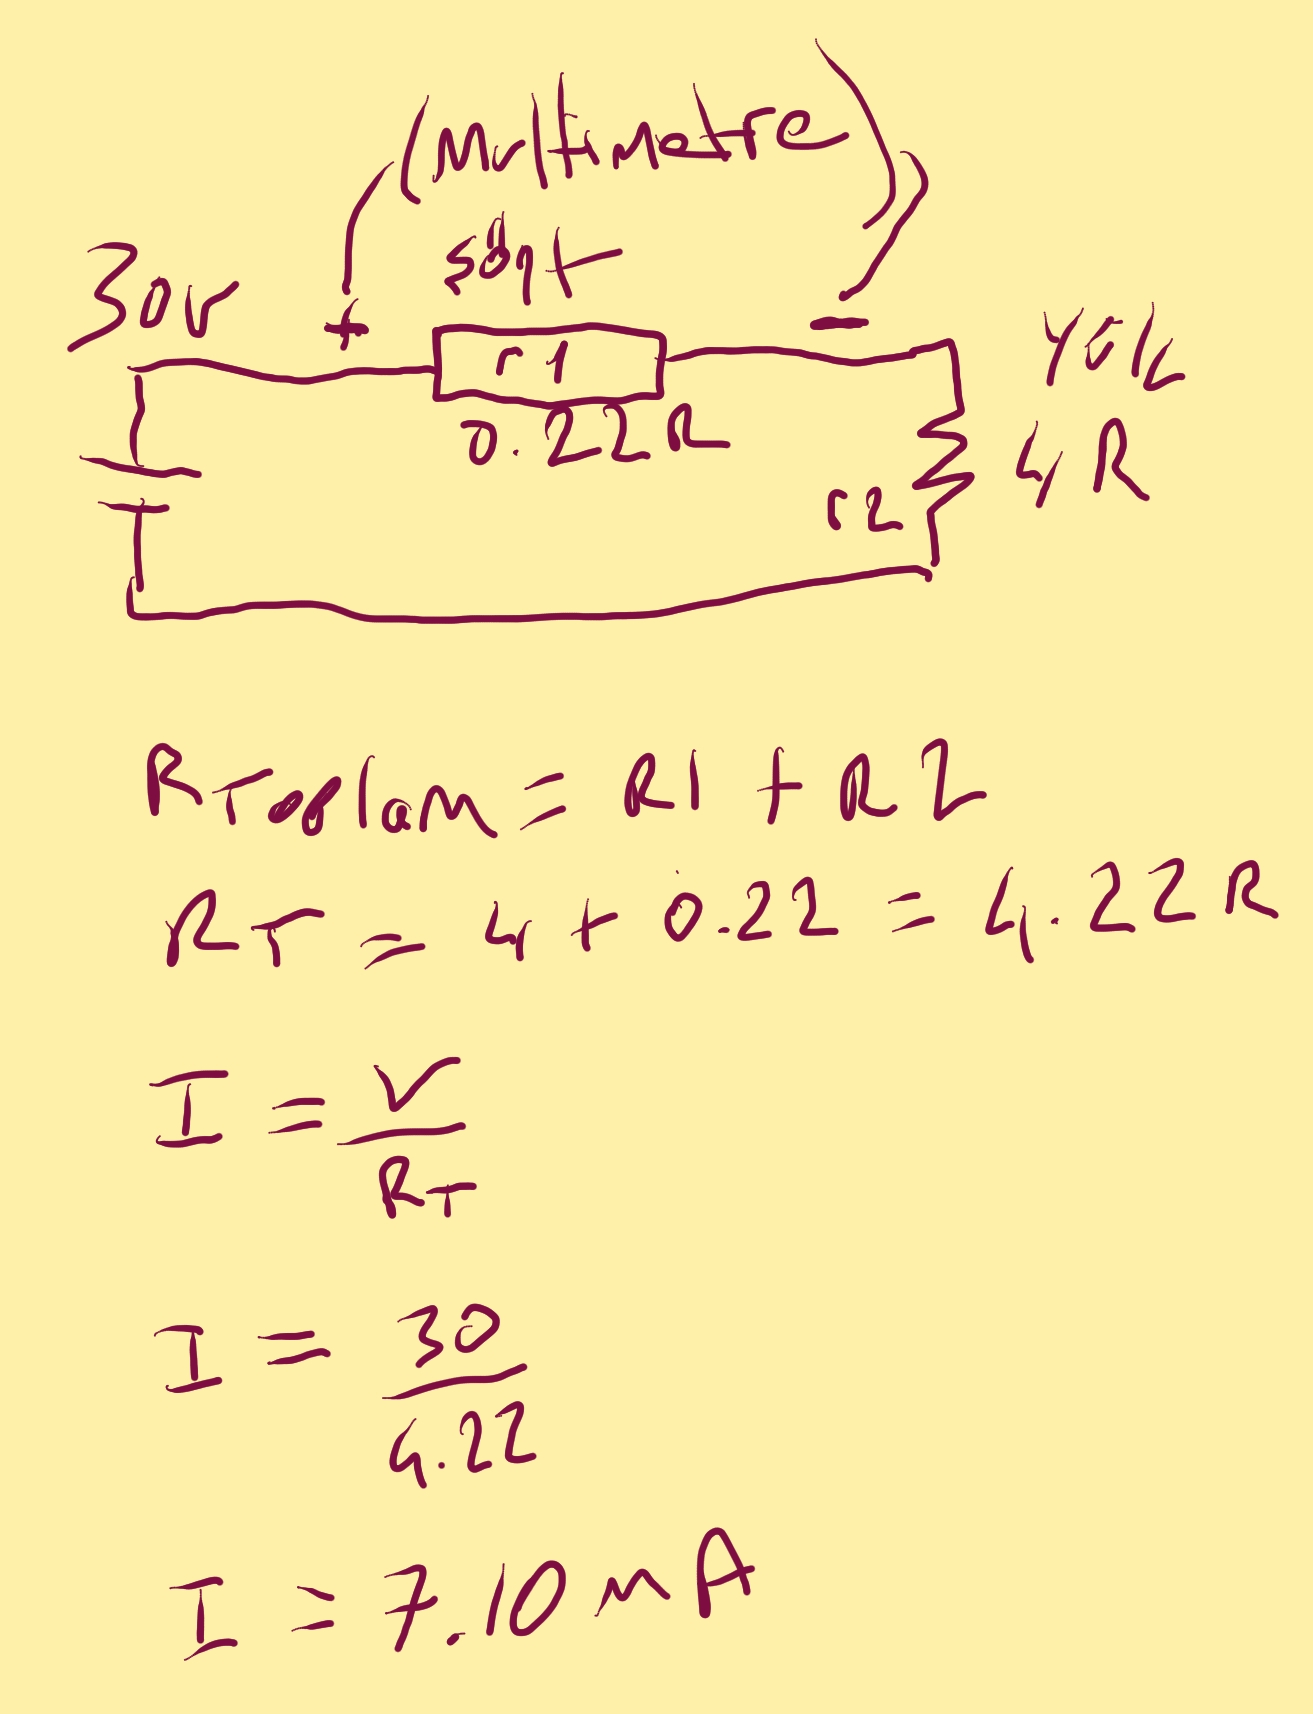 (Multimetre)
30v
şönt
+
-
r1
0.22R
Yük
4R
r2
RToplam = R1 + R2
RT = 4 + 0.22 = 4.22R
I = V/RT
I = 30/4.22
I = 7.10mA